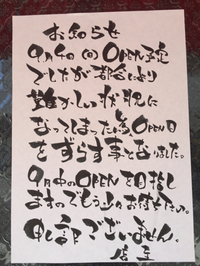 お知らせ
9月4日(日)OPEN予定
でしたが都合により
難かしい状況に
なってしまった為OPEN日
をずらす事となりました。
9月中のOPENを目指し
ますのでもう少々お待ち下さい。
申し訳ございません。
店主